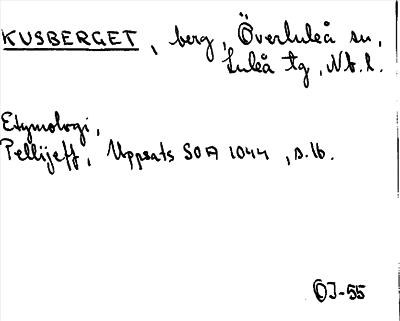 KUSBERGET, berg, Överluleå sn,
Luleå tg, Nb. l.
Etymologi,
Pellijeff, Uppsats SOA 1044, s. 16.
ÖJ-55